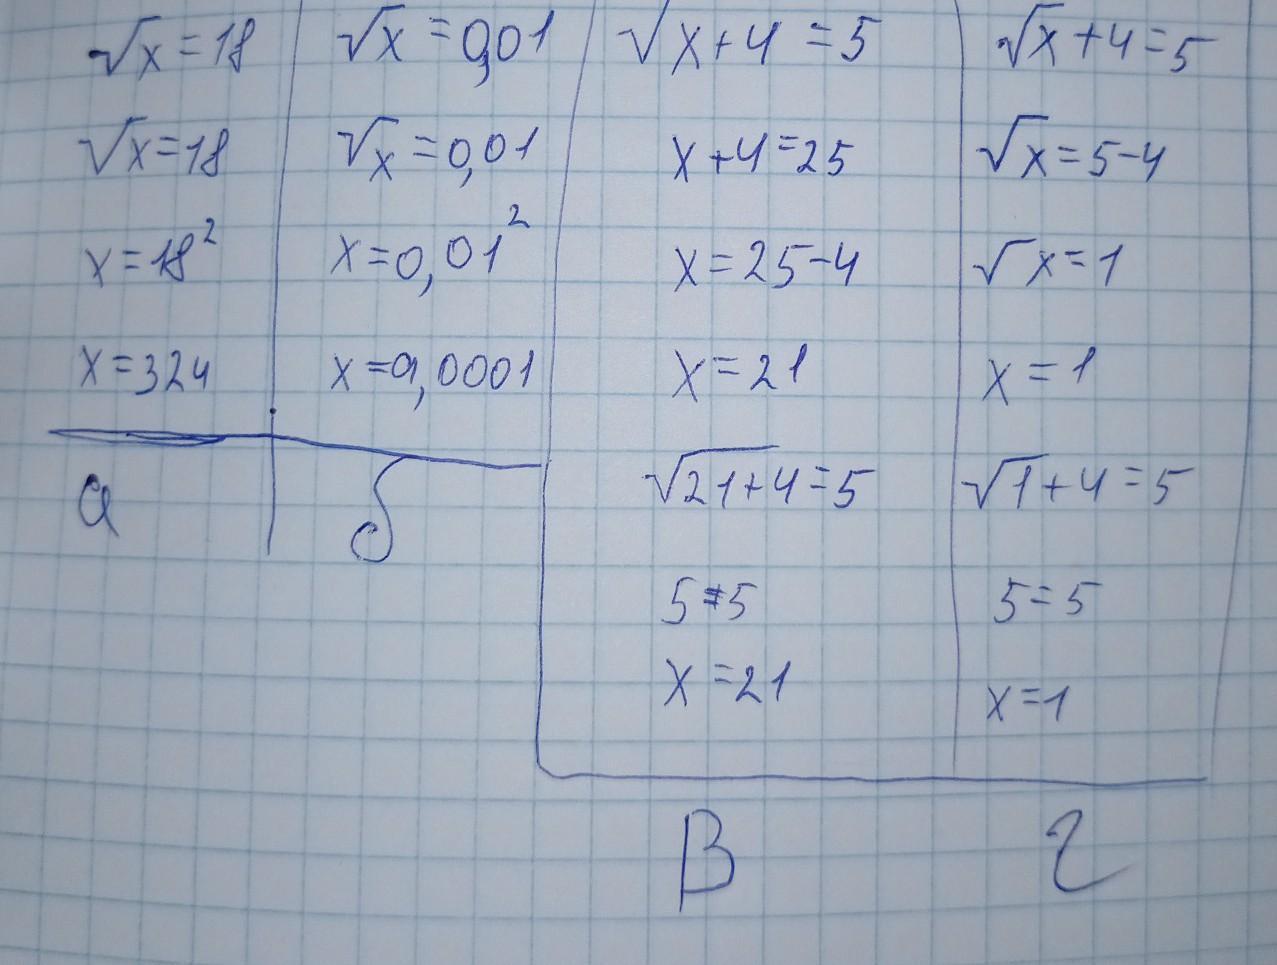 √x = 18
√x = 18
x = 18²
x = 324
а
√x = 0,01
√x = 0,01
x = 0,01²
x = 0,0001
б
√x+4 = 5
x+4 = 25
x = 25-4
x = 21
√21+4 = 5
5 = 5
x = 21
В
√x + 4 = 5
√x = 5-4
√x = 1
x = 1
√1 + 4 = 5
5 = 5
x = 1
г